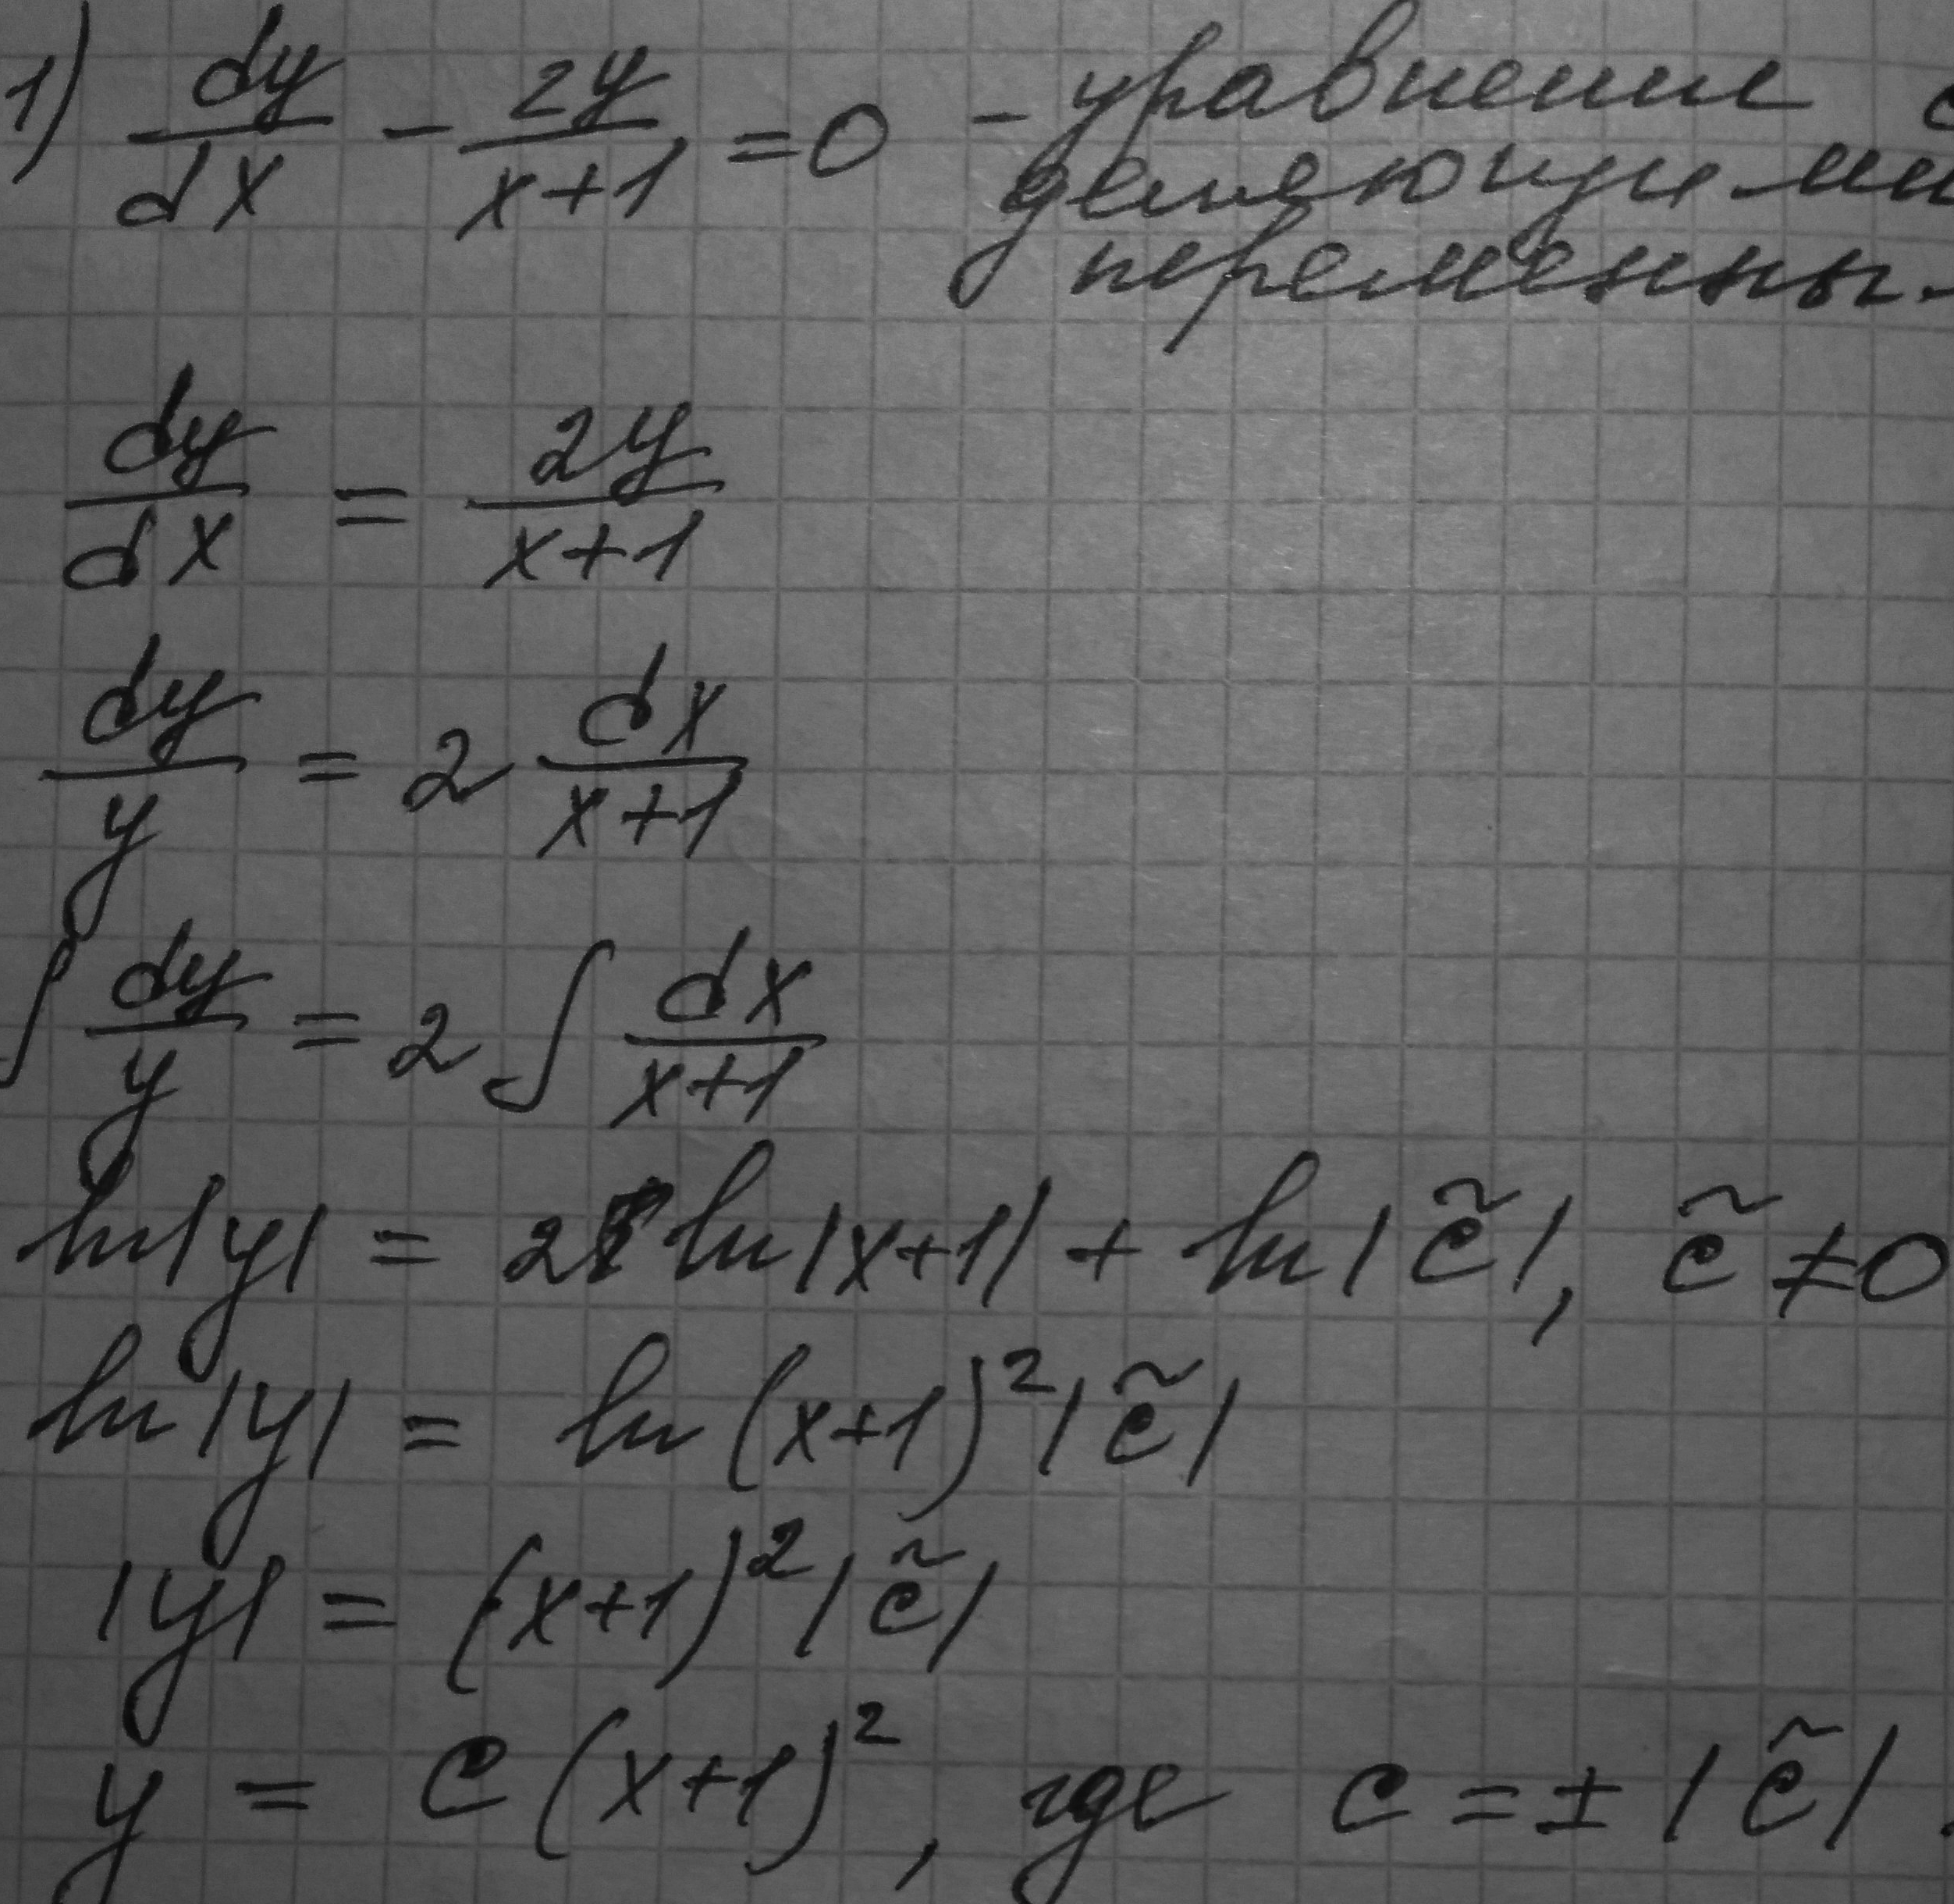 1) dy/dx - 2y/(x+1) = 0 - уравнение с
деляющими
переменны-
dy/dx = 2y/(x+1)
dy/y = 2 dx/(x+1)
∫ dy/y = 2 ∫ dx/(x+1)
ln|y| = 2 ln|x+1| + ln|c̃|, c̃ ≠ 0
ln|y| = ln(x+1)²|c̃|
|y| = (x+1)²|c̃|
y = c(x+1)², где c = ± |c̃|.